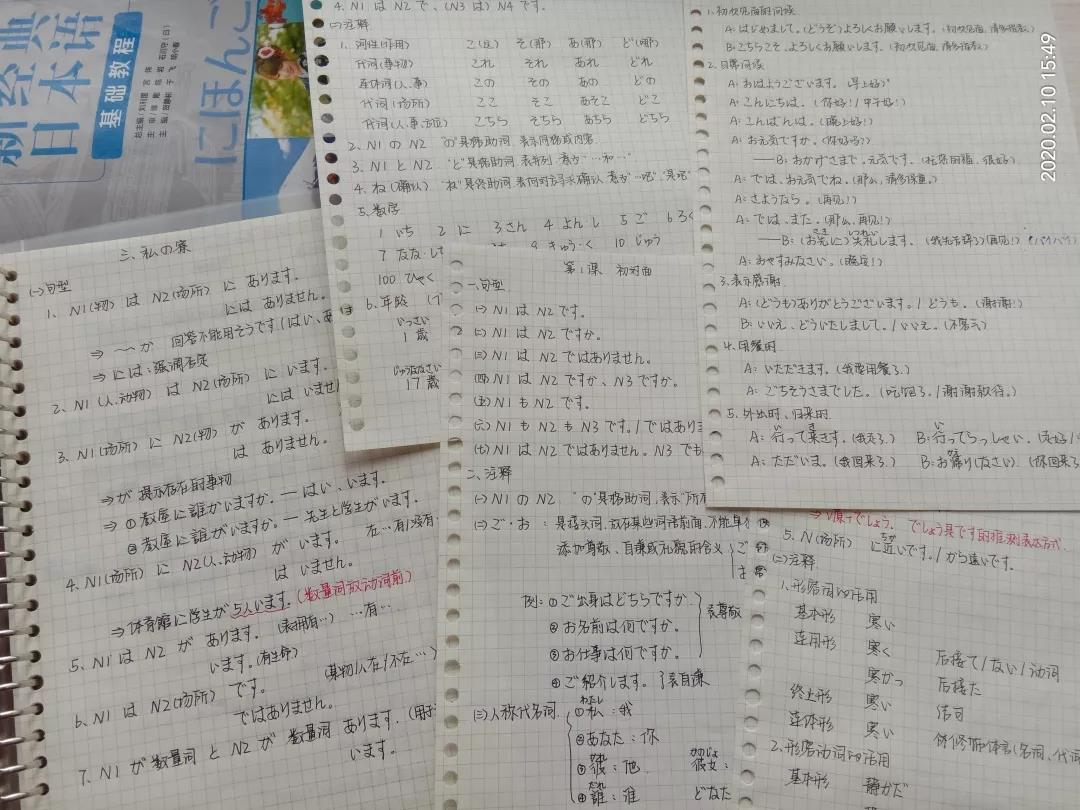 新经典
日本语
基础教程
にほんご
2020.02.10 15:49
4. N1 は N2 で、(N3 は) N4 です。
(二)注释
1. 词性(作用) こ(这) そ(那) あ(那) ど(哪)
代词(事物) これ それ あれ どれ
连体词(人、事) この その あの どの
代词(场所) ここ そこ あそこ どこ
代词(人、事、方位) こちら そちら あちら どちら
2. N1 の N2 "の"是格助词,表示同格或内容
3. N1 と N2 "と"是格助词,表并列,意为"…和…"
4. ね(确认) "ね"是终助词,表向对方寻求确认,意为"…吧""是吧"
5. 数字
1 いち 2 に 3 さん 4 よん、し 5 ご 6 ろく
7 なな、しち 9 きゅう・く 10 じゅう
100 ひゃく
6. 年龄
いっさい
1歳
じゅうななさい
17歳
1. 初次见面时问候
A: はじめまして。(どうぞ)よろしくお願いします。(初次见面,请多指教)
B: こちらこそ、よろしくお願いします。(初次见面,请多指教)
2. 日常问候
A: おはようございます。(早上好)
A: こんにちは。(你好!/中午好!)
A: こんばんは。(晚上好!)
A: お元気ですか。(你好吗?)
——B: おかげさまで、元気です。(托您的福,很好)
A: では、お元気でね。(那么,请多保重。)
A: さようなら。(再见!)
A: では、また。(那么,再见!)
——B: (お先に)失礼します。(我先告辞了)(再见!)(バイバイ)
A: おやすみなさい。(晚安!)
3. 表示感谢
A: (どうも)ありがとうございます。/どうも。(谢谢!)
B: いいえ、どういたしまして。/いいえ。(不客气)
4. 用餐时
A: いただきます。(我要用餐了。)
A: ごちそうさまでした。(吃好了。/谢谢款待。)
5. 外出时、归来时
A: 行って来ます。(我走了。) B: 行ってらっしゃい。(走好
A: ただいま。(我回来了。) B: お帰り(なさい)。(你回来了
三、私の寮
(一)句型
1、N1(物) は N2(场所) に あります。
には ありません。
⇒ 〜〜か 回答不能用そうです(はい、あ
⇒ には:强调否定
2、N1(人、动物) は N2(场所) に います。
には いませ
3、N1(场所) に N2(物) が あります。
は ありません。
⇒が 提示存在的事物
⇒ ① 教屋に誰かいますか。— はい、います。
② 教屋に誰がいますか。— 先生と学生がいます。
4、N1(场所) に N2(人、动物) が います。 在…有/没有…
は いません。
⇒体育館に学生が5人います。(数量词放动词前)
5、N1 は N2 が あります。(表拥有…) …有…
います。(有生命)
6、N1 は N2(场所) です。 (某物/人在/不在…)
ではありません。
7、N1 が 数量词 と N2 が 数量词 あります。(用于
います。
第1课 初対面
一、句型
(一) N1 は N2 です。
(二) N1 は N2 ですか。
(三) N1 は N2 ではありません。
(四) N1 は N2 ですか、N3 ですか。
(五) N1 も N2 です。
(六) N1 も N2 も N3 です。/ではありま
(七) N1 は N2 ではありません。N3 でも
二、注释
(一) N1 の N2. "の"是格助词,表示"所有
(二) ご・お :是接头词,放在某些词语前面,不能单
添加尊敬、自谦或礼貌的含义
例:① ご出身はどちらですか。
② お名前は何ですか。 表尊敬
③ お仕事は何ですか。
④ ご紹介します。 表自谦
(三)人称代名词
① 私:我
わたし
② あなた:你
③ 彼:他 彼女:
かれ かのじょ
④ 誰:谁 どなた
だれ
⇒ V原+でしょう. でしょう是です的推测表达方式.
5. N(场所) に近いです。/から遠いです。
(二)注释
1.形容词的活用
基本形 寒い
连用形 寒く 后接て/ない/动词
寒かっ 后接た
终止形 寒い 结句
连体形 寒い 修饰体言(名词、代词
2.形容动词的活用
基本形 静かだ